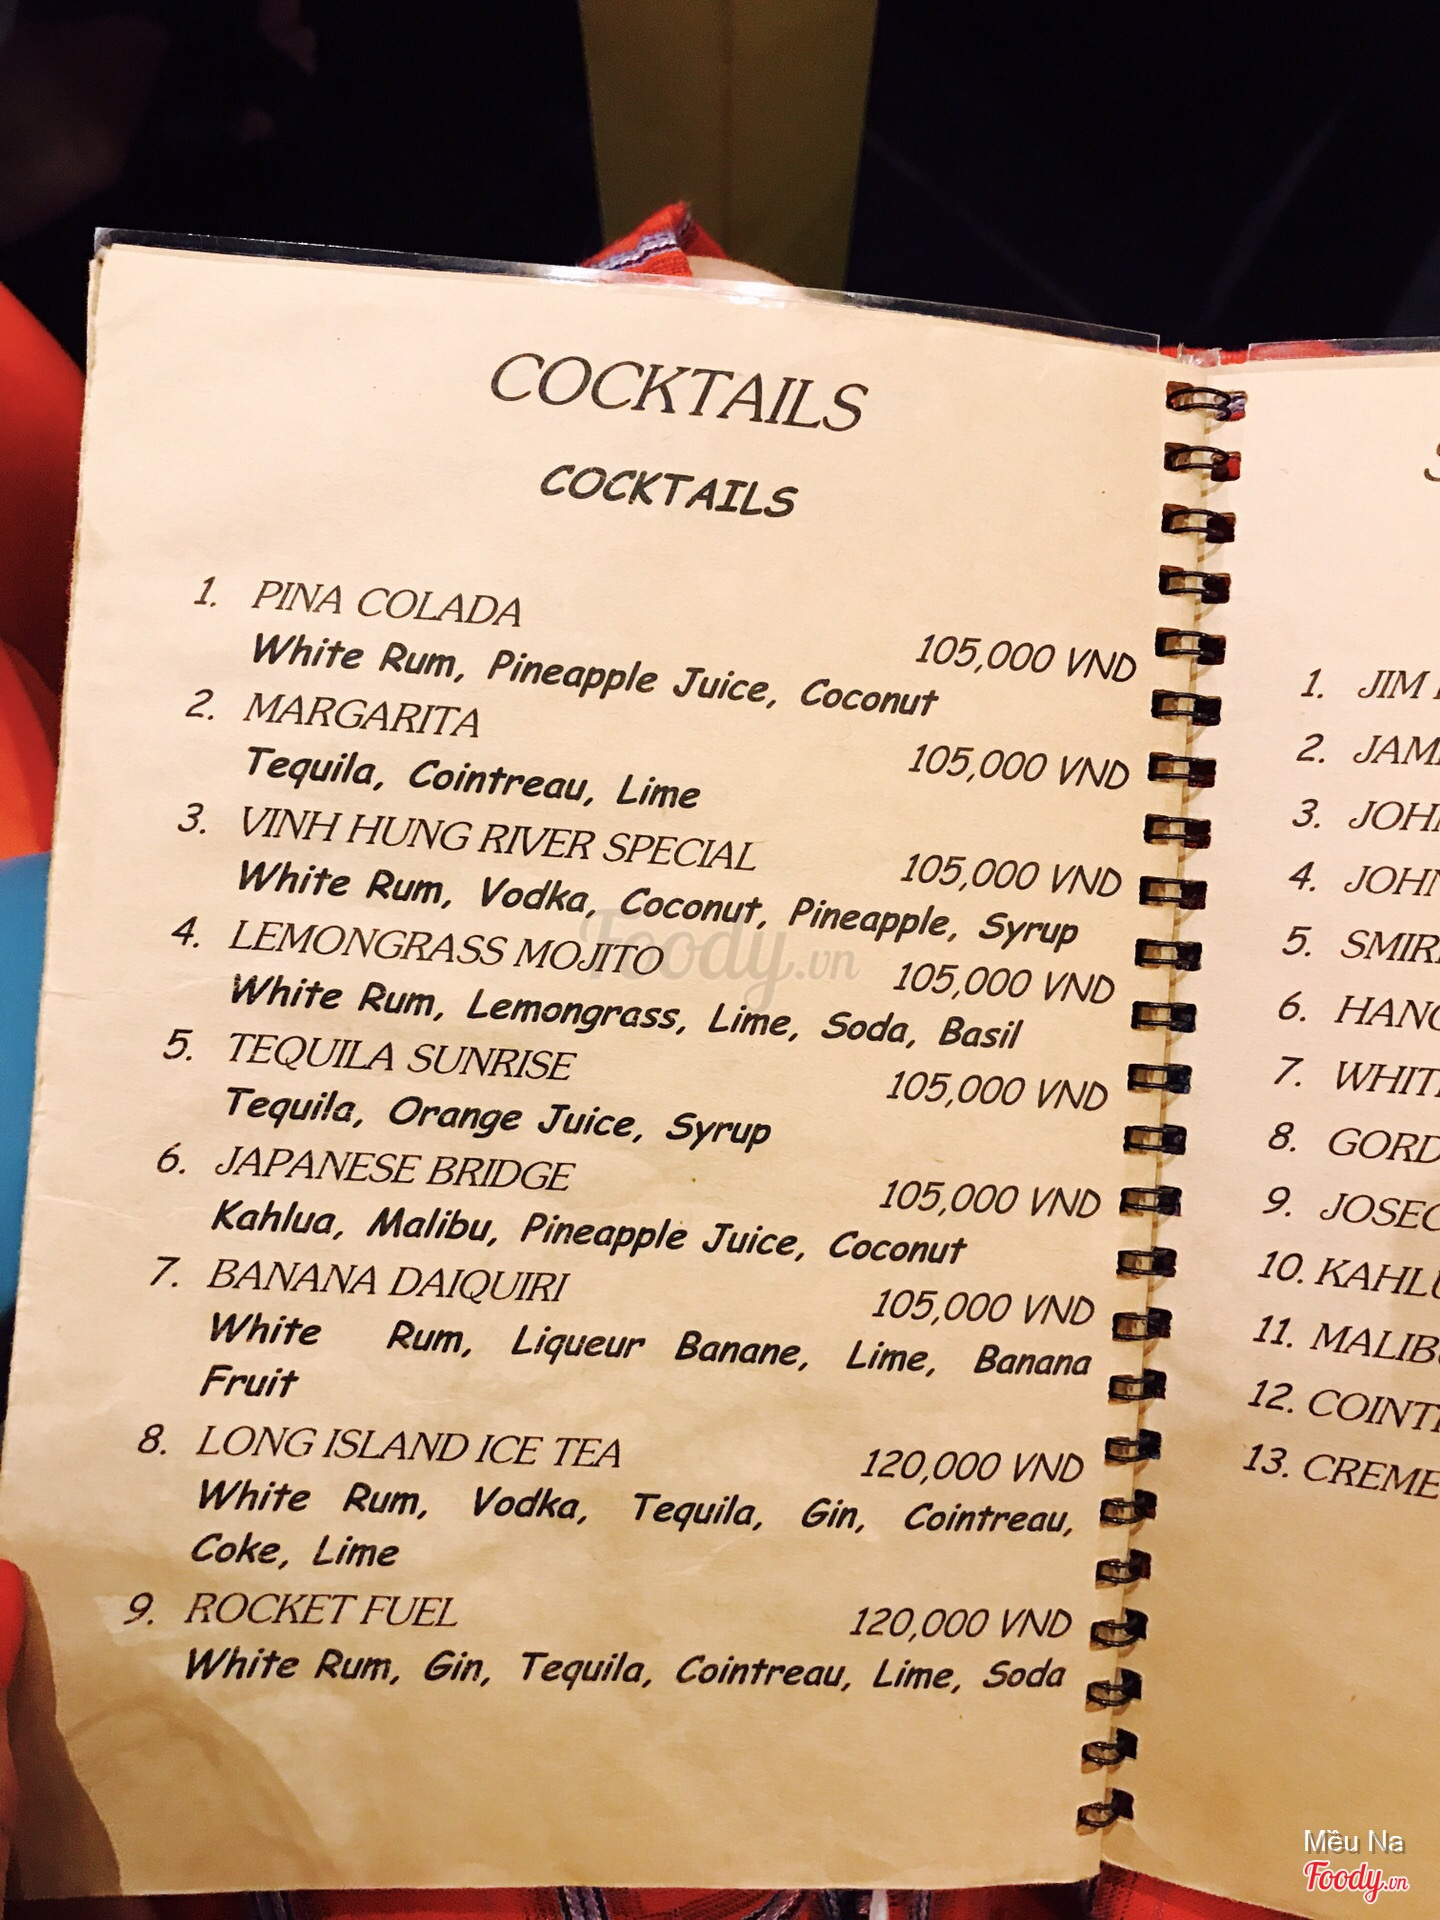 COCKTAILS
COCKTAILS
1. PINA COLADA
105,000 VND
White Rum, Pineapple Juice, Coconut
2. MARGARITA
105,000 VND
Tequila, Cointreau, Lime
3. VINH HUNG RIVER SPECIAL
105,000 VND
White Rum, Vodka, Coconut, Pineapple, Syrup
4. LEMONGRASS MOJITO
105,000 VND
White Rum, Lemongrass, Lime, Soda, Basil
5. TEQUILA SUNRISE
105,000 VND
Tequila, Orange Juice, Syrup
6. JAPANESE BRIDGE
105,000 VND
Kahlua, Malibu, Pineapple Juice, Coconut
7. BANANA DAIQUIRI
105,000 VND
White Rum, Liqueur Banane, Lime, Banana
Fruit
8. LONG ISLAND ICE TEA 120,000 VND
White Rum, Vodka, Tequila, Gin, Cointreau,
Coke, Lime
9. ROCKET FUEL 120,000 VND
White Rum, Gin, Tequila, Cointreau, Lime, Soda
Foody.vn
1. JIM
2.
3.
4.
5.
6.
7.
8.
9.
10.
11.
12.
13. CREME
Mều Na
Foody.vn